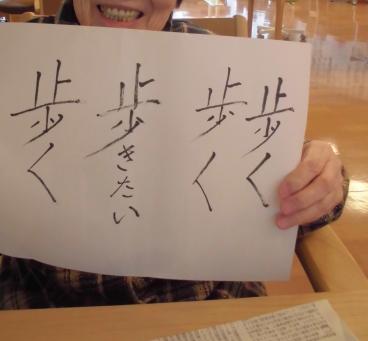 歩く
歩く
歩きたい
歩く